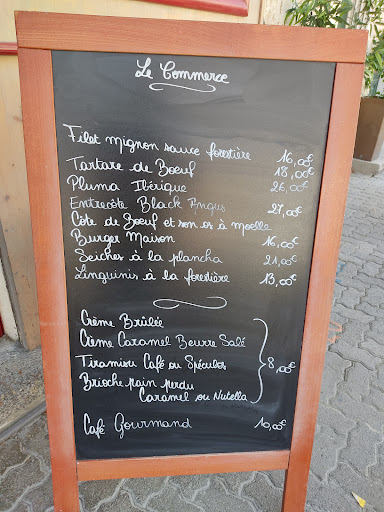 Le Commerce
Filet mignon sauce forestière 16,00€
Tartare de Boeuf 18,00€
Pluma Ibérique 26,00€
Entrecôte Black Angus 27,00€
Côte de Boeuf et son os à moelle
Burger Maison 16,00€
Seiches à la plancha 21,00€
Linguinis à la forestière 13,00€
Crème Brûlée
Crème Caramel Beurre Salé
Tiramisu Café ou Spéculos 8,00€
Brioche pain perdu
Caramel ou Nutella
Café Gourmand 10,00€